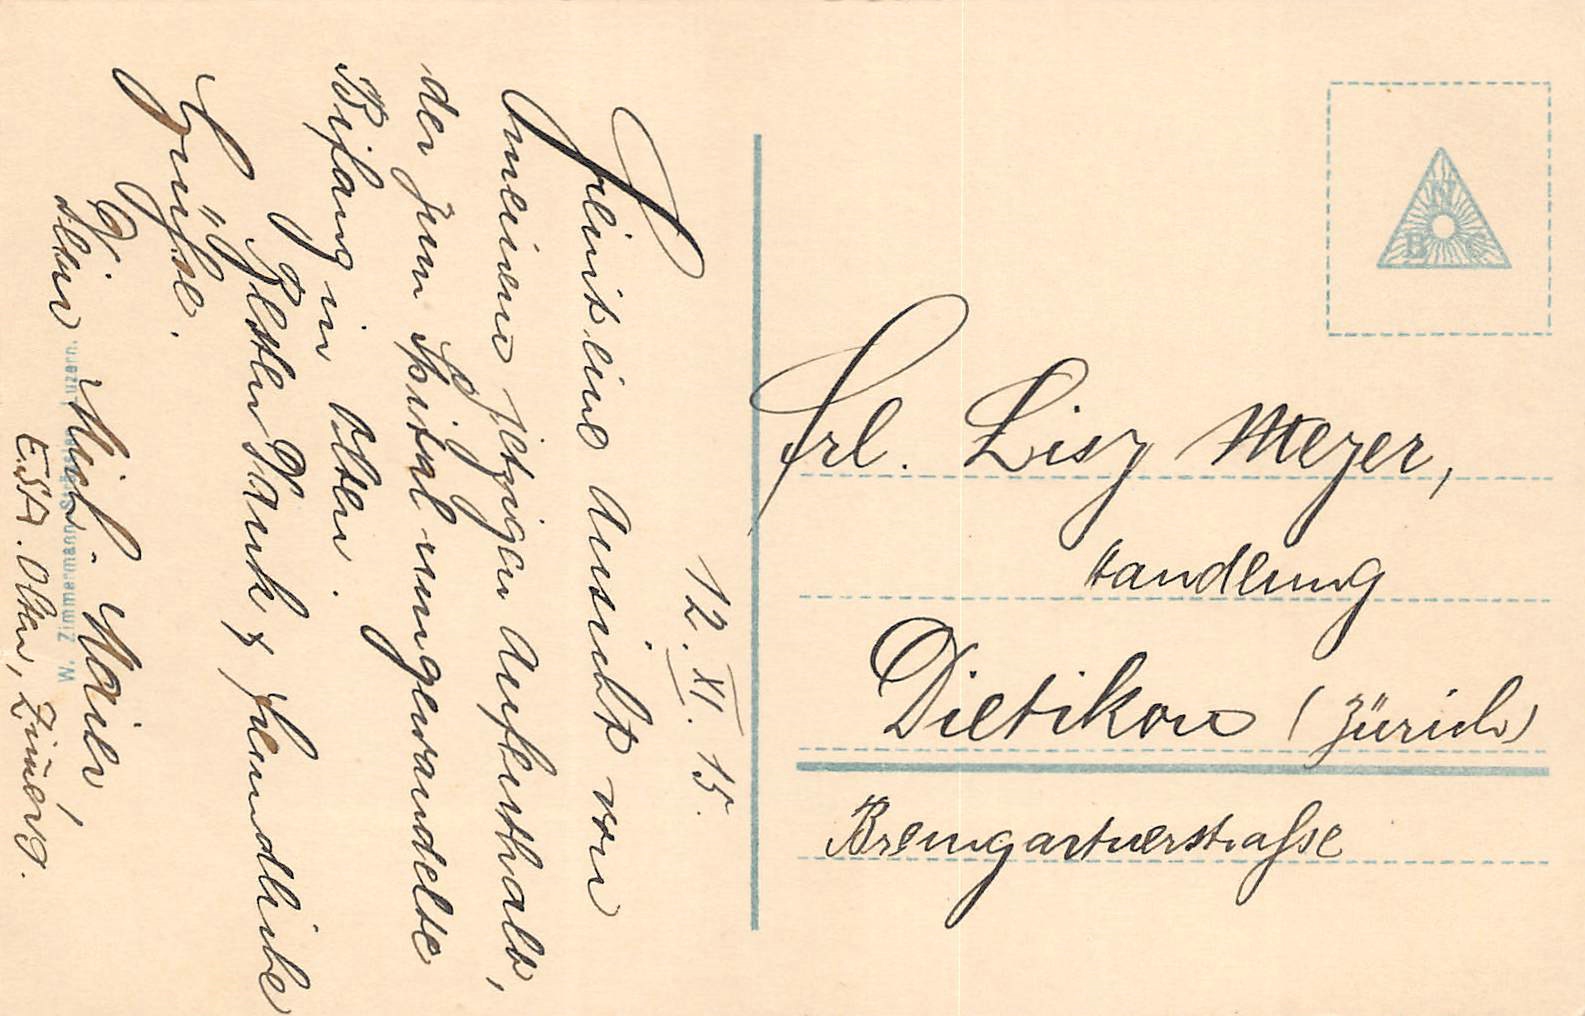 12. XI. 15.
Hierinit eine Ansicht von
meinem jetzigen Aufenthalt,
der zum Spital umgewandelte
Bifang in Olten.
Besten Dank & freundliche
Grüsse.
Dein
Mich. Maier,
E.S.A. Olten, Zimer 9.
W. Zimmermann-Strässle, Luzern.
N
B
Frl. Lisy Meyer,
Handlung
Dietikon (Zürich)
Bremgartnerstrasse